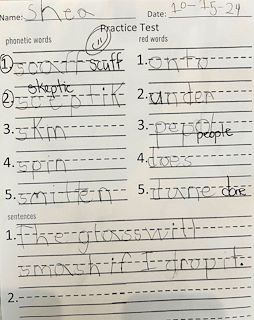 Name: Shea Date: 10-15-24
Practice Test
phonetic words red words
1. scuff 1. onto
skeptic
2. sceptik 2. under
3. skm 3. people
4. spin 4. does
5. smitten 5. done
sentences
1. The glass will
smash if I drop it.
2.